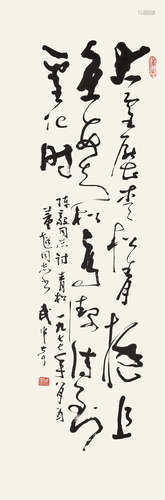 大雪压青松青松挺且
直要知松高洁待到
雪化時
陈毅同志诗青松 一九七七年
同志 武中奇